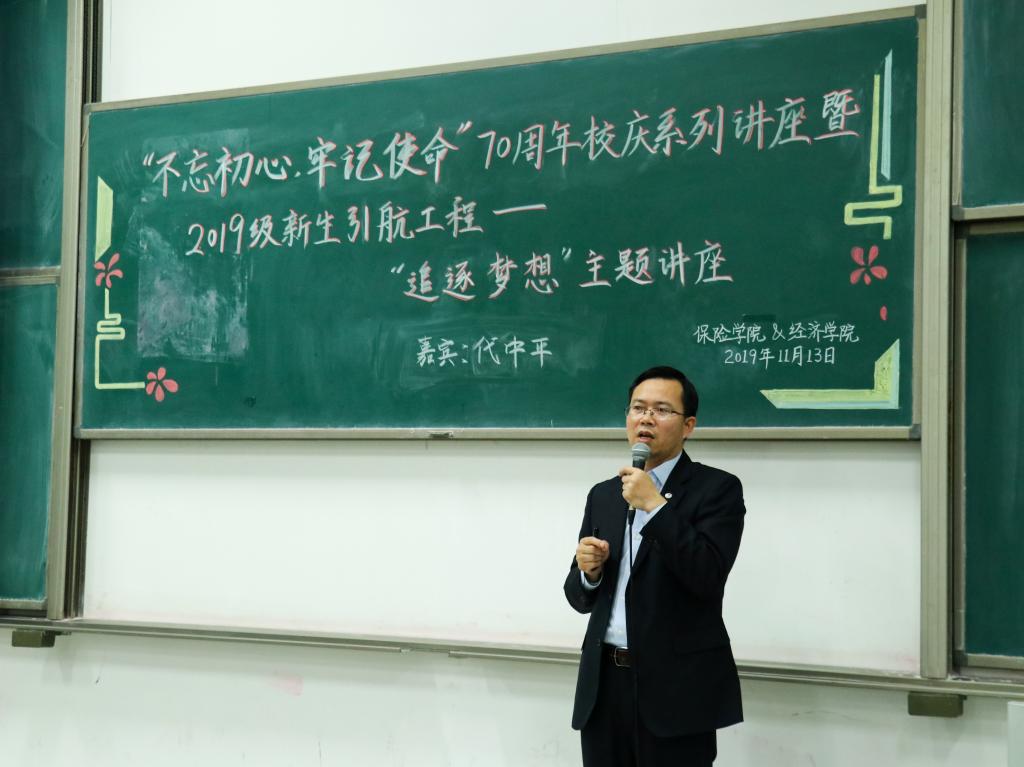 “不忘初心、牢记使命”70周年校庆系列讲座暨
2019级新生引航工程——
“追逐梦想”主题讲座
嘉宾：代中平
保险学院 & 经济学院
2019年11月13日